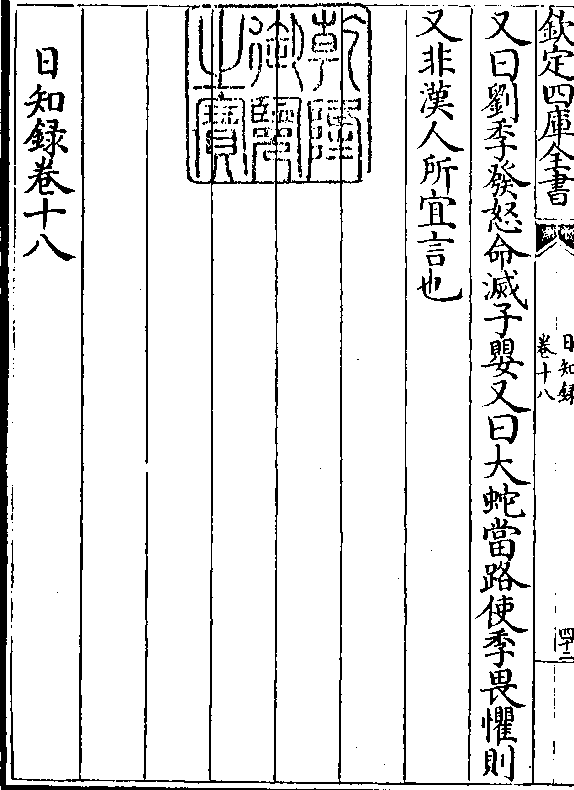 欽定四庫全書
日知錄
卷十八
四十二
又曰劉季發怒命滅子嬰又曰大蛇當路使季畏懼則
又非漢人所宜言也
乾隆
御覽
之寶
日知錄卷十八